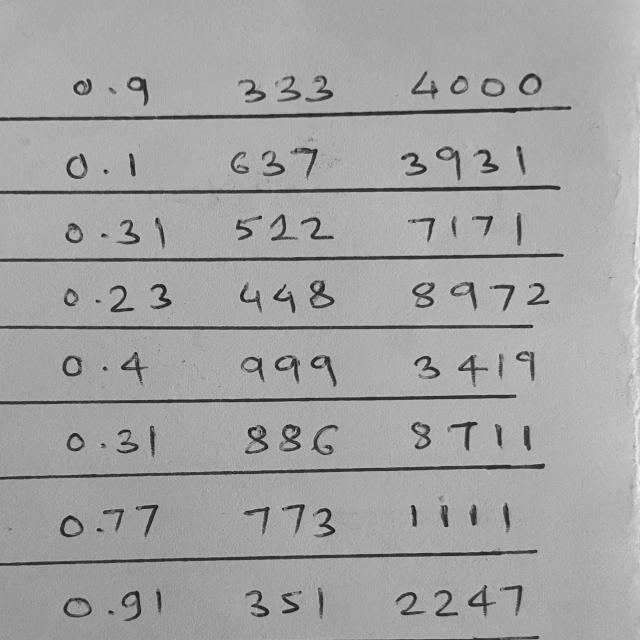 0.9 333 4000
0.1 637 3931
0.31 522 7171
0.23 448 8972
0.4 999 3419
0.31 886 8711
0.77 773 1111
0.91 351 2247